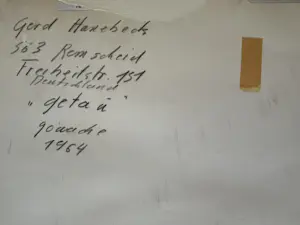 Gerd Hanebeck
563 Remscheid
Freiheitstr. 131
Deutschland
"getaü"
gouache
1964